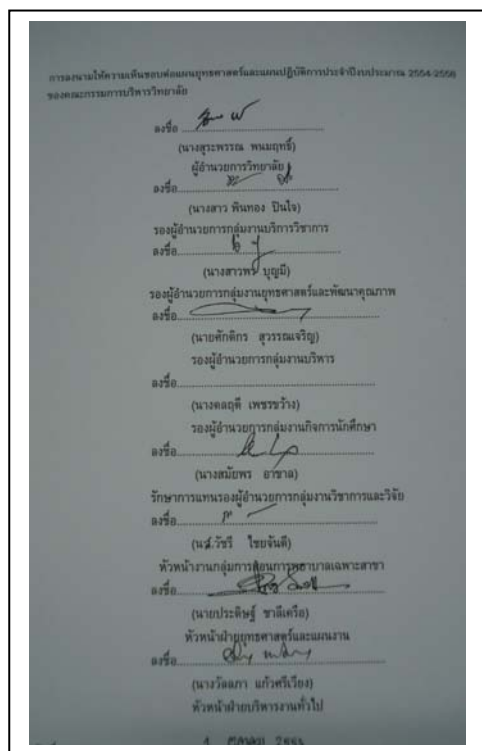 การลงนามให้ความเห็นชอบต่อแผนยุทธศาสตร์และแผนปฏิบัติการประจำปีงบประมาณ 2554-2556
ของคณะกรรมการบริหารวิทยาลัย
ลงชื่อ
(นางสุระพรรณ พนมฤทธิ์)
ผู้อำนวยการวิทยาลัย
ลงชื่อ
(นางสาว พินทอง ปินใจ)
รองผู้อำนวยการกลุ่มงานบริการวิชาการ
ลงชื่อ
(นางสาวพร บุญมี)
รองผู้อำนวยการกลุ่มงานยุทธศาสตร์และพัฒนาคุณภาพ
ลงชื่อ
(นายศักดิกร สุวรรณเจริญ)
รองผู้อำนวยการกลุ่มงานบริหาร
ลงชื่อ
(นางดลฤดี เพชรขว้าง)
รองผู้อำนวยการกลุ่มงานกิจการนักศึกษา
ลงชื่อ
(นางสมัยพร อาขาล)
รักษาการแทนรองผู้อำนวยการกลุ่มงานวิชาการและวิจัย
ลงชื่อ
(นส.วัชรี ไชยจันดี)
หัวหน้างานกลุ่มการสอนการพยาบาลเฉพาะสาขา
ลงชื่อ
(นายประดิษฐ์ ชาลีเครือ)
หัวหน้าฝ่ายยุทธศาสตร์และแผนงาน
ลงชื่อ
(นางวัลลภา แก้วศรีเวียง)
หัวหน้าฝ่ายบริหารงานทั่วไป